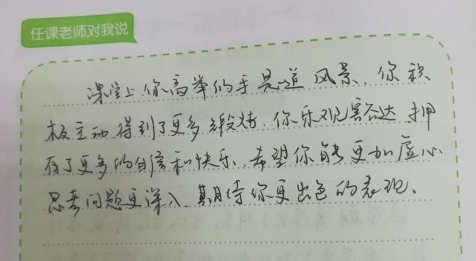 任课老师对我说
课堂上你高举的手是道风景,你积
极主动得到了更多锻炼,你乐观豁达拥
有了更多的自信和快乐,希望你能更加虚心
思考问题更深入,期待你更出色的表现。